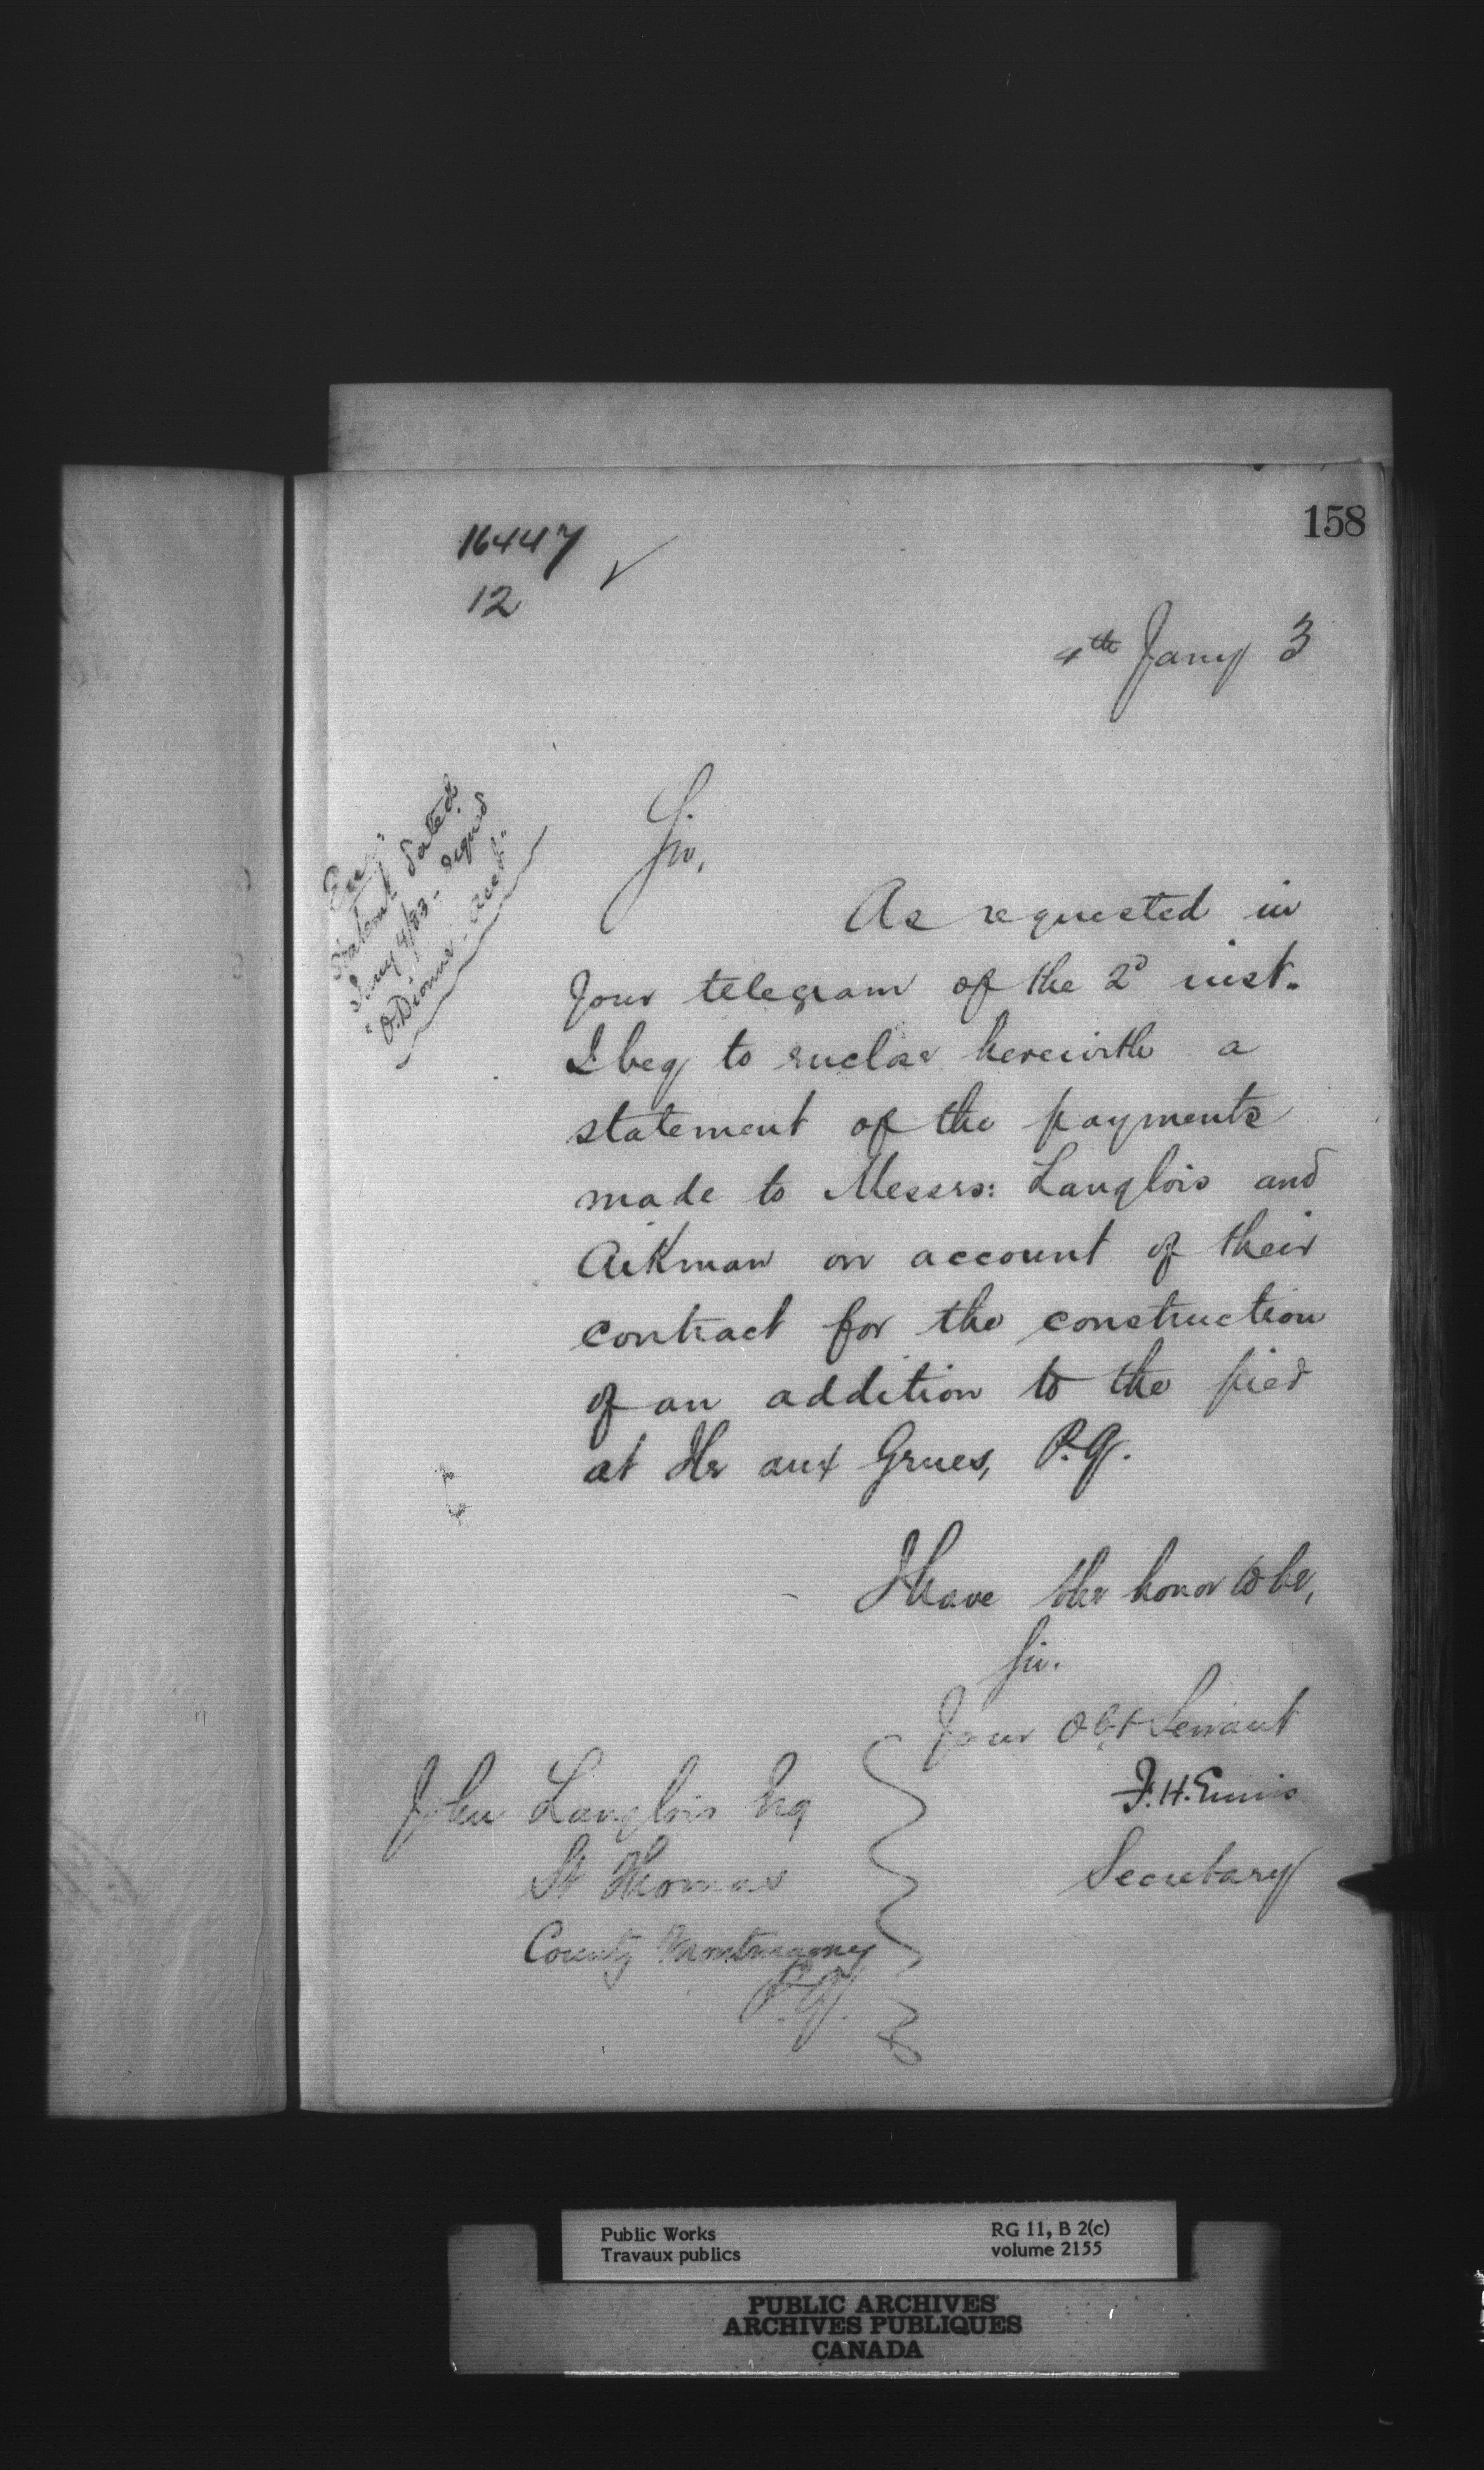 158
16447
12
4th Jany 3
Enc:
Statemt dated
Jany 4/83 - signed
"O. Dionne - Acct."
Sir,
As requested in
your telegram of the 2d inst.
I beg to enclose herewith a
statement of the payments
made to Messrs: Langlois and
Aikman on account of their
contract for the construction
of an addition to the pier
at Ile aux Grues, P.Q.
I have the honor to be,
Sir.
Your Obt Servant
F. H. Ennis
Secretary
John Langlois Esq
St Thomas
County Montmagny
P.Q.
Public Works
Travaux publics
RG 11, B 2(c)
volume 2155
PUBLIC ARCHIVES
ARCHIVES PUBLIQUES
CANADA